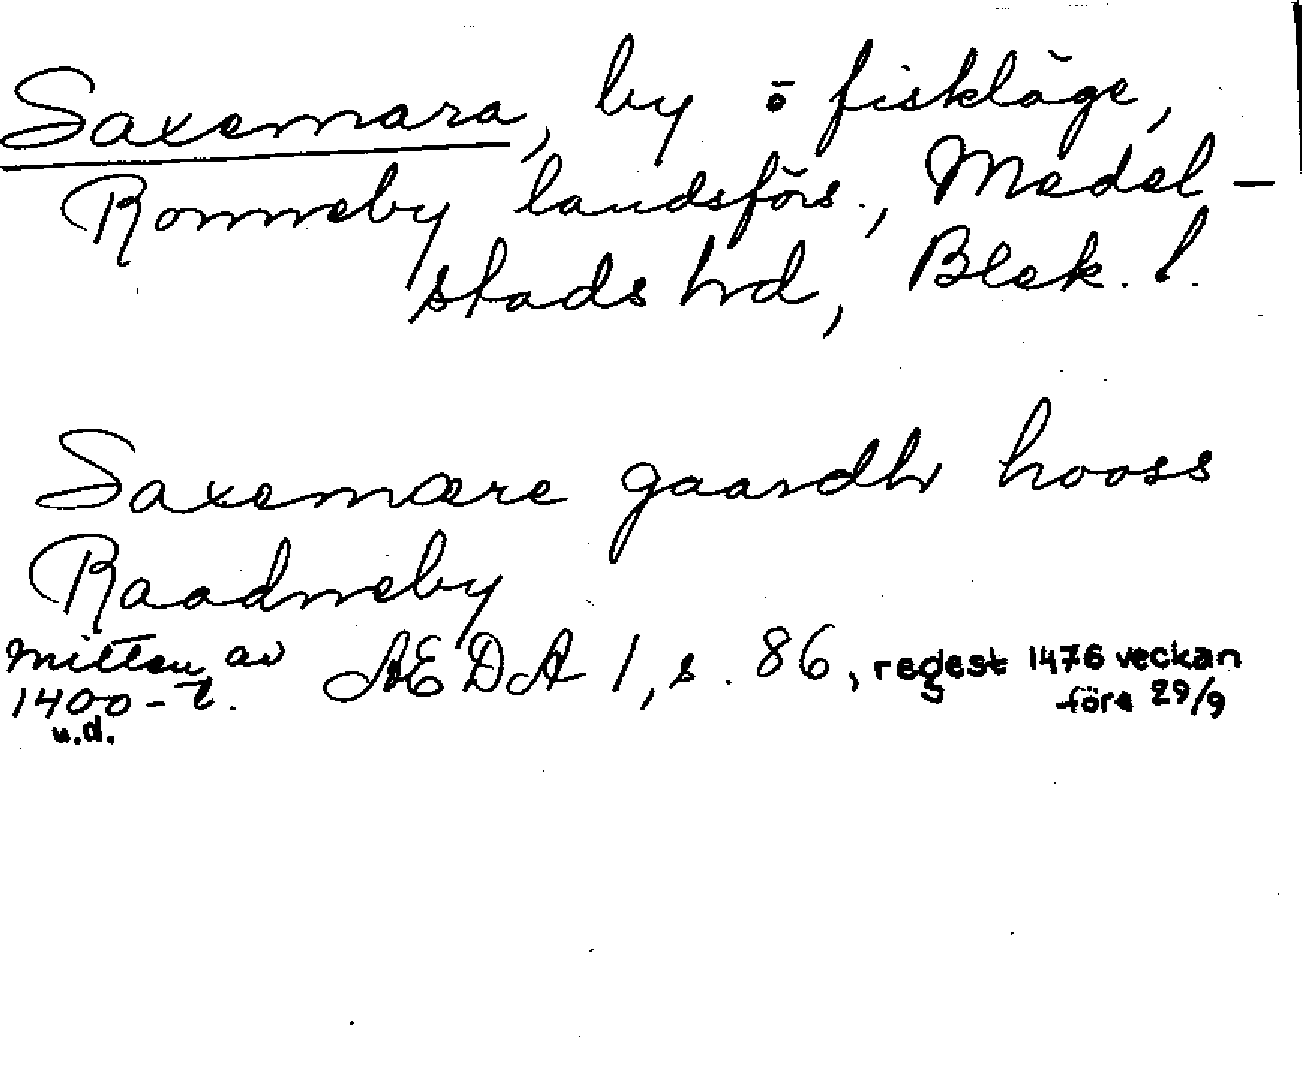 Saxemara, by o fiskläge,
Ronneby landsförs., Medel-
stads hd, Blek. l.
Saxemære gaardh hooss
Raadneby
mitten av AEDA 1, s. 86, regest 1476 veckan
1400-t. före 29/9
u.d.